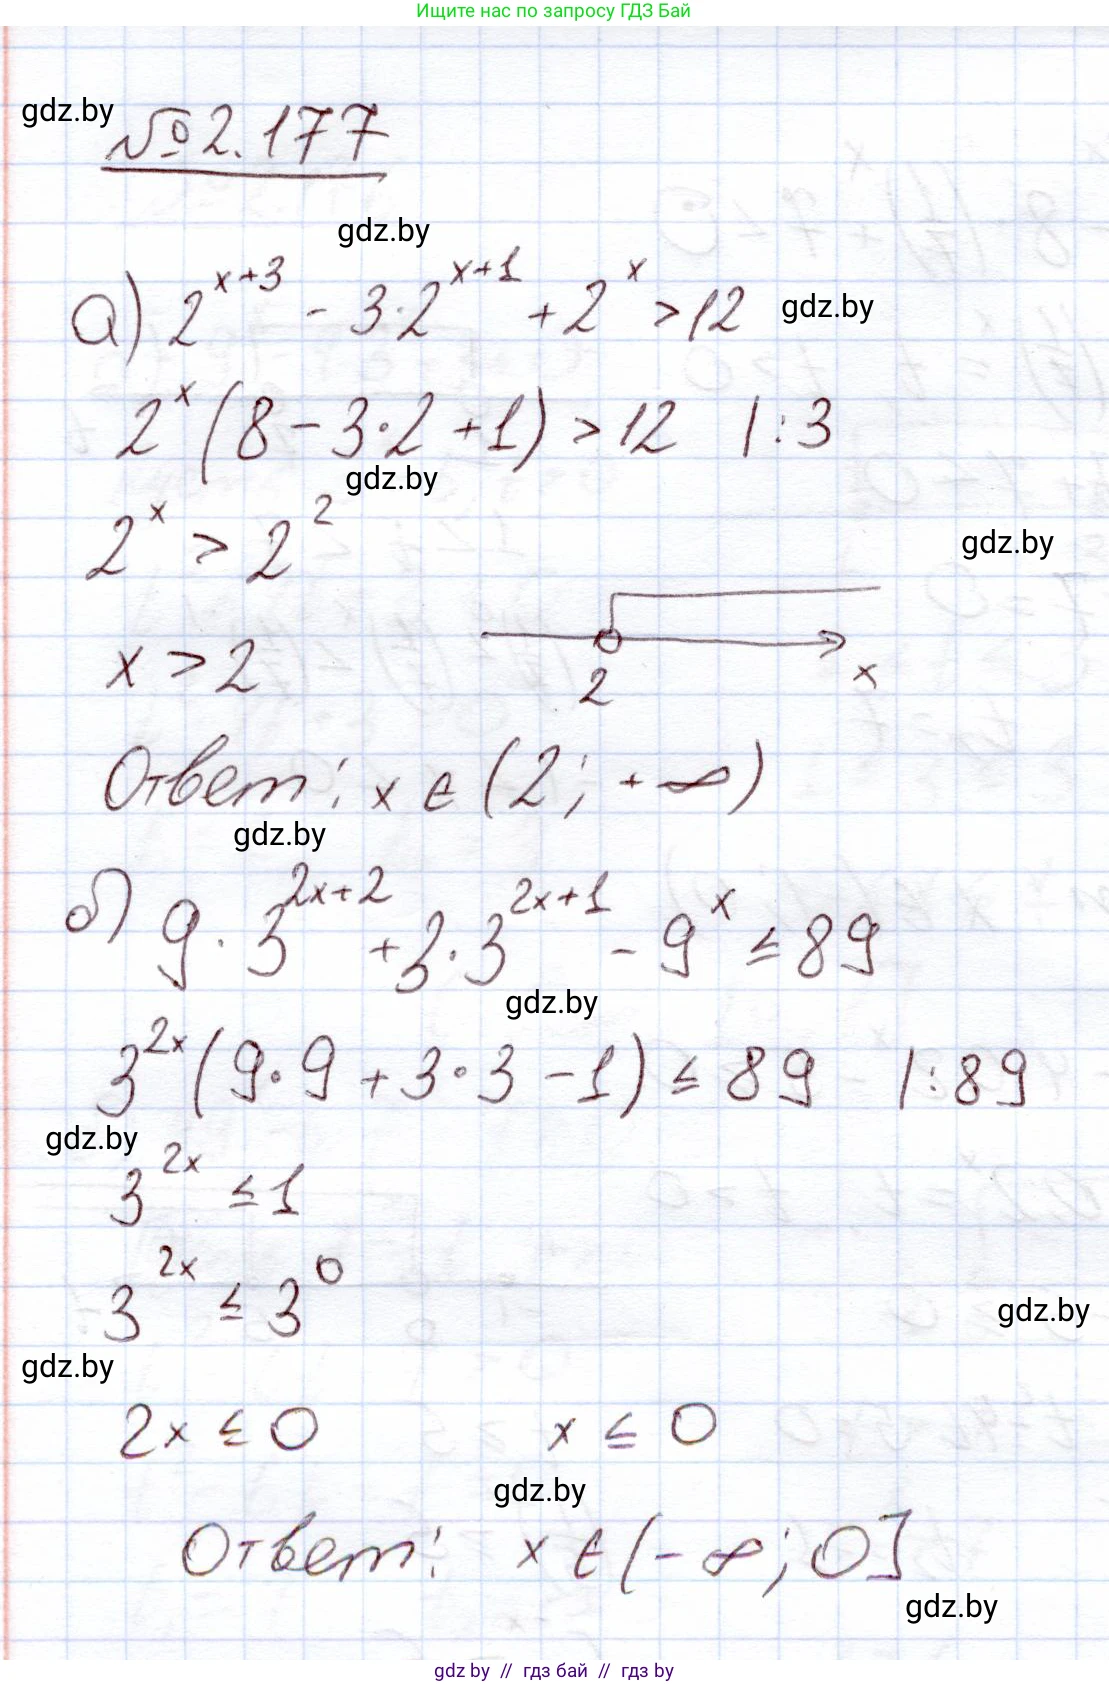 Ищите нас по запросу ГДЗ Бай
gdz.by
№2.177
gdz.by
а) 2^{x+3} - 3·2^{x+1} + 2^x > 12
gdz.by
2^x (8 - 3·2 + 1) > 12 |:3
gdz.by
2^x > 2^2
gdz.by
x > 2
2
x
Ответ: x ∈ (2; +∞)
gdz.by
б) 9·3^{2x+2} + 3·3^{2x+1} - 9^x ≤ 89
gdz.by
3^{2x} (9·9 + 3·3 - 1) ≤ 89 |:89
gdz.by
3^{2x} ≤ 1
3^{2x} ≤ 3^0
gdz.by
gdz.by
2x ≤ 0 x ≤ 0
gdz.by
Ответ: x ∈ (-∞; 0]
gdz.by
gdz by // гдз бай // гдз by